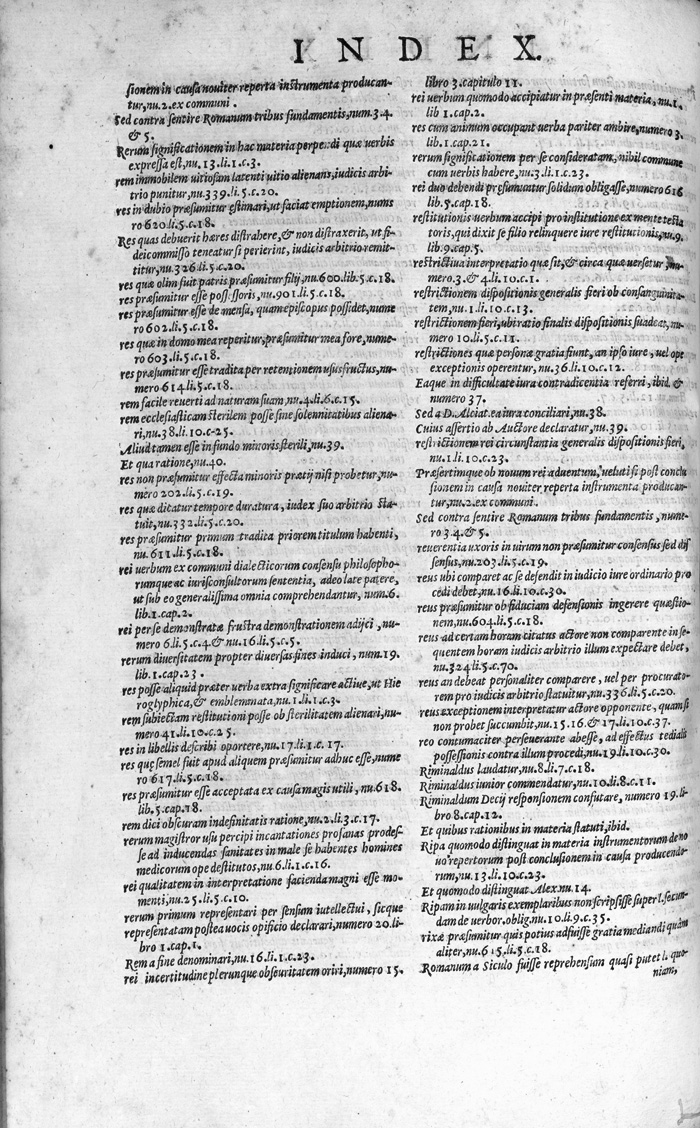 INDEX.
sionem in causa noviter reperta instrumenta producan-
tur, nu. 2. ex communi.
Sed contra sentire Romanum tribus fundamentis, num. 3. 4.
& 5.
Rerum significationem in hac materia perpendi quæ verbis
expressa est, nu. 13. li. 1. c. 3.
rem immobilem vitiosam latenti vitio alienans, iudicis arbi-
trio punitur, nu. 339. li. 5. c. 20.
res in dubio præsumitur estimari, ut faciat emptionem, nume
ro 620. li. 5. c. 18.
Res quas debuerit hæres distrahere, & non distraxerit, ut fi-
deicommisso teneatur si perierint, iudicis arbitrio remit-
titur, nu. 326. li. 5. c. 20.
res quæ olim fuit patris præsumitur filij, nu. 600. lib. 5. c. 18.
res præsumitur esse possessoris, nu. 901. li. 5. c. 18.
res præsumitur esse de mensa, quam episcopus possidet, nume
ro 602. li. 5. c. 18.
res quæ in domo mea reperitur, præsumitur mea fore, nume-
ro 603. li. 5. c. 18.
res præsumitur esse tradita per retentionem ususfructus, nu-
mero 614. li. 5. c. 18.
rem facile reverti ad naturam suam, nu. 4. li. 6. c. 15.
rem ecclesiasticam sterilem posse sine solennitatibus aliena-
ri, nu. 38. li. 10. c. 25.
Aliud tamen esse in fundo minoris sterili, nu. 39.
Et qua ratione, nu. 40.
res non præsumitur effecta minoris prætij nisi probetur, nu-
mero 202. li. 5. c. 19.
res quæ dicatur tempore duratura, iudex suo arbitrio sta-
tuit, nu. 332. li. 5. c. 20.
res præsumitur primum tradita priorem titulum habenti,
nu. 611. li. 5. c. 18.
rei verbum ex communi dialecticorum consensu philosopho-
rumque ac iurisconsultorum sententia, adeo late patere,
ut sub eo generalissima omnia comprehendantur, num. 6.
lib. 1. cap. 2.
rei per se demonstratæ frustra demonstrationem adijci, nu-
mero 6. li. 5. c. 4. & nu. 16. li. 5. c. 5.
rerum diversitatem propter diversas fines induci, num. 19.
lib. 1. cap. 23.
res posse aliquid præter verba extra significare active, ut Hie
roglyphica, & emblemata, nu. 1. li. 1. c. 3.
rem subiectam restitutioni posse ob sterilitatem alienari, nu-
mero 41. li. 10. c. 25.
res in libellis describi oportere, nu. 17. li. 1. c. 17.
res quæ semel fuit apud aliquem præsumitur adhuc esse, nume
ro 617. li. 5. c. 18.
res præsumitur esse acceptata ex causa magis utili, nu. 618.
lib. 5. cap. 18.
rem dici obscuram indefinitatis ratione, nu. 2. li. 3. c. 17.
rerum magistror usu percipi incantationes profanas prodes-
se ad inducendas sanitates in male se habentes homines
medicorum ope destitutos, nu. 6. li. 1. c. 16.
rei qualitatem in interpretatione facienda magni esse mo-
menti, nu. 25. li. 5. c. 10.
rerum primum representari per sensum intellectui, sicque
representatam postea vocis opificio declarari, numero 20. li-
bro 1. cap. 1.
Rem a fine denominari, nu. 16. li. 1. c. 23.
rei incertitudine plerunque obscuritatem oriri, numero 15.
libro 3. capitulo 11.
rei verbum quomodo accipiatur in præsenti materia, nu. 1.
lib 1. cap. 2.
res cum animum occupant verba pariter ambire, numero 3.
lib. 1. cap. 21.
rerum significationem per se consideratam, nihil commune
cum verbis habere, nu. 3. li. 1. c. 23.
rei duo debendi præsumuntur solidum obligasse, numero 616
lib. 5. cap. 18.
restitutionis verbum accipi pro institutione ex mente testa
toris, qui dixit se filio relinquere iure restitutionis, nu. 9.
lib. 9. cap. 5.
restrictiva interpretatio quæ sit, & circa quæ versetur, nu-
mero. 3. & 4. li. 10. c. 1.
restrictionem dispositionis generalis fieri ob consanguinita-
tem, nu. 1. li. 10. c. 13.
restrictionem fieri, ubi ratio finalis dispositionis suadeat, nu-
mero 10. li. 5. c. 11.
restrictiones quæ personæ gratia fiunt, an ipso iure, vel ope
exceptionis operentur, nu. 36. li. 10. c. 12.
Eaque in difficultate iura contradicentia referri, ibid. &
numero 37.
Sed a D. Alciat. ea iura conciliari, nu. 38.
Cuius assertio ab Auctore declaratur, nu. 39.
restrictionem rei circunstantia generalis dispositionis fieri,
nu. 1. li. 10. c. 23.
Præsertimque ob novum rei adventum, veluti si post conclu
sionem in causa noviter reperta instrumenta producan-
tur, nu. 2. ex communi.
Sed contra sentire Romanum tribus fundamentis, nume-
ro 3. 4. & 5.
reverentia uxoris in virum non præsumitur consensus sed dis
sensus, nu. 203. li. 5. c. 19.
reus ubi comparet ac se defendit in iudicio iure ordinario pro
cedi debet, nu. 16. li. 10. c. 30.
reus præsumitur ob fiduciam defensionis ingerere quæstio-
nem, nu. 604. li. 5. c. 18.
reus ad certam horam citatus actore non comparente in se-
quentem horam iudicis arbitrio illum expectare debet,
nu. 324. li. 5. c. 70.
reus an debeat personaliter comparere, vel per procurato-
rem pro iudicis arbitrio statuitur, nu. 336. li. 5. c. 20.
reus exceptionem interpretatur actore opponente, quam si
non probet succumbit, nu. 15. 16. & 17. li. 10. c. 37.
reo contumaciter perseverante abesse, ad effectus tedialis
possessionis contra illum procedi, nu. 19. li. 10. c. 30.
Riminaldus laudatur, nu. 8. li. 7. c. 18.
Riminaldus iunior commendatur, nu. 10. li. 8. c. 11.
Riminaldum Decij responsionem confutare, numero 19. li-
bro 8. cap. 12.
Et quibus rationibus in materia statuti, ibid.
Ripa quomodo distinguat in materia instrumentorum deno
vo repertorum post conclusionem in causa producendo-
rum, nu. 13. li. 10. c. 23.
Et quomodo distinguat Alex. nu. 14.
Ripam in vulgaris exemplaribus non scripsisse super l. secun-
dam de verbor. oblig. nu. 10. li. 9. c. 35.
rixæ præsumitur quis potius adfuisse gratia mediandi quam
aliter, nu. 615. li. 5. c. 18.
Romanum a Siculo fuisse reprehensum quasi putet l. quo-
niam,